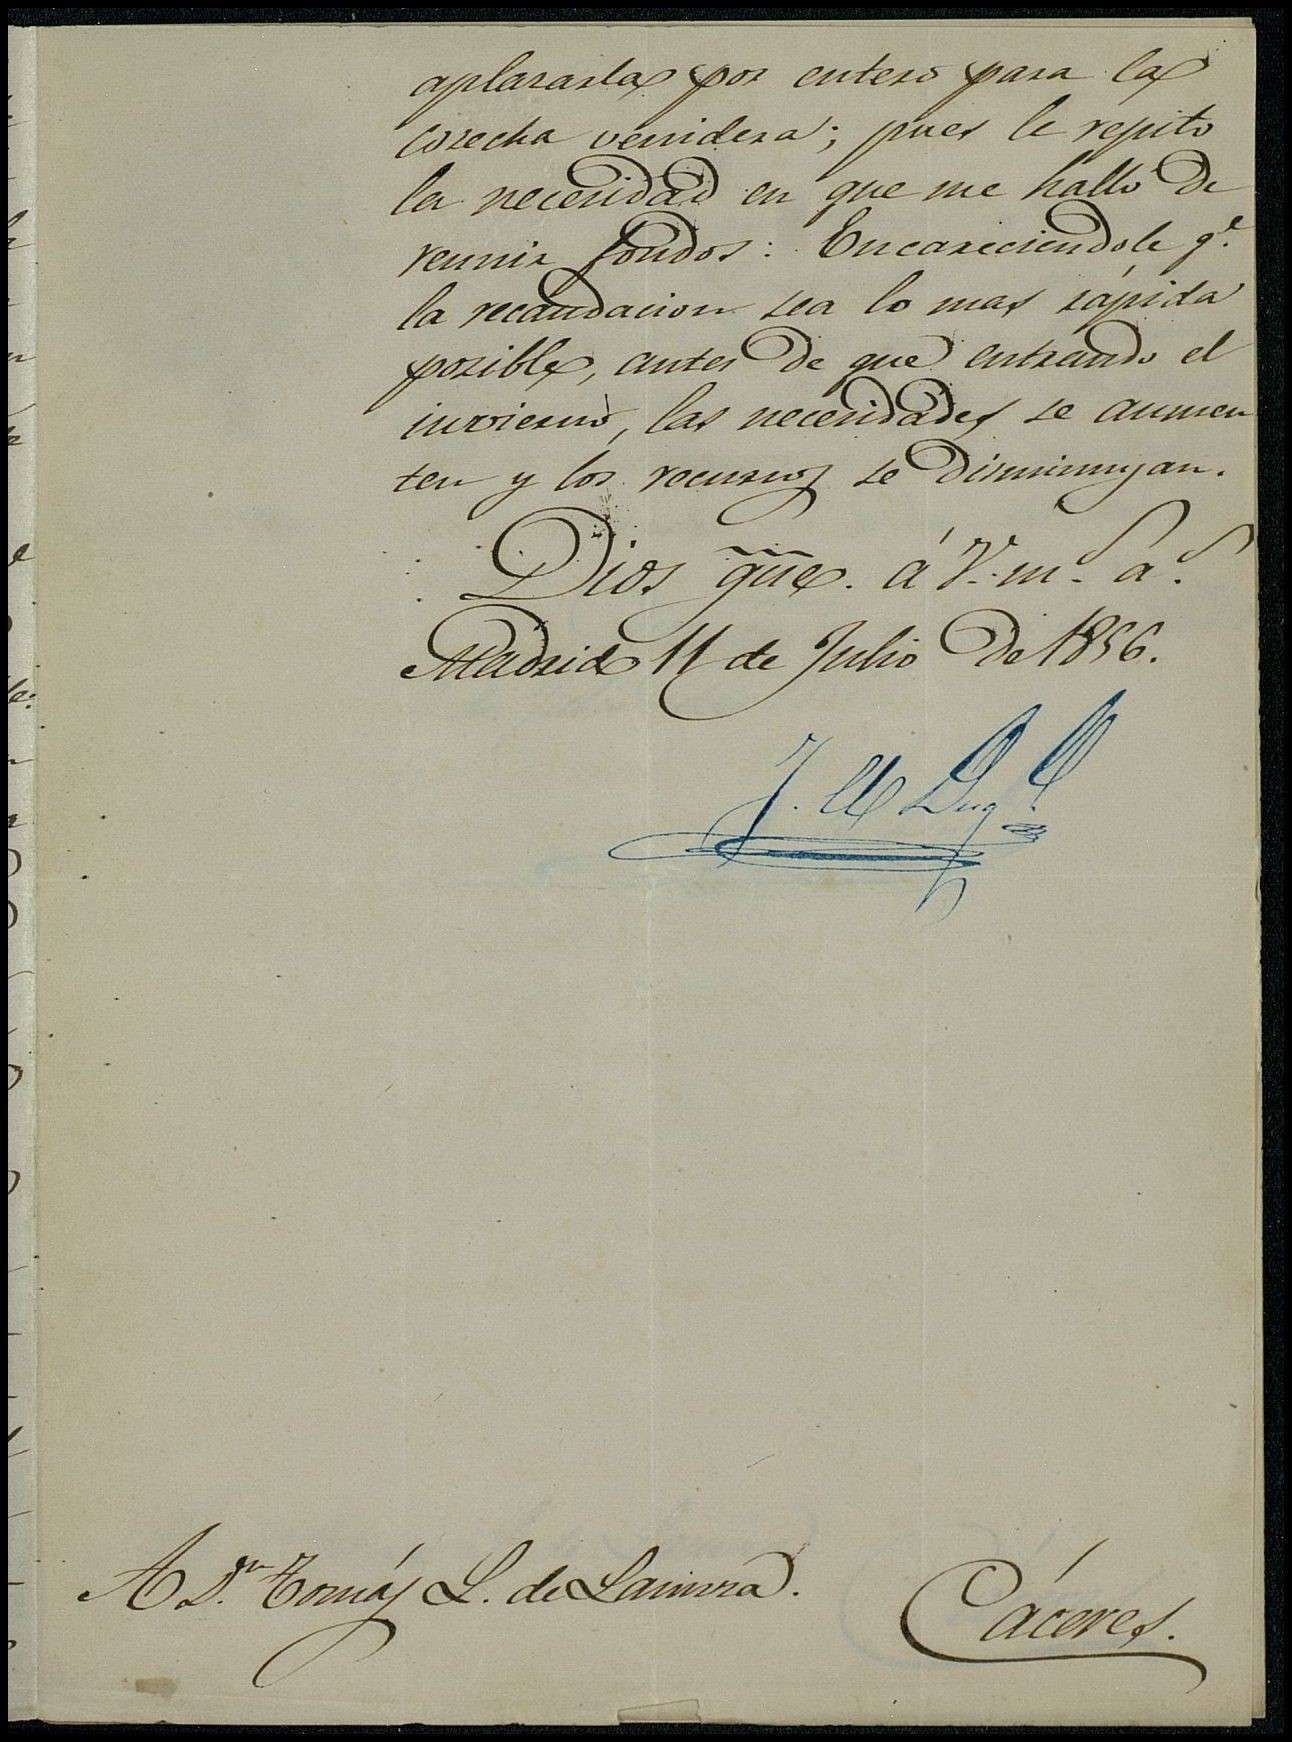 aplazarla por entero para la
cosecha venidera; pues le repito
la necesidad en que me hallo de
reunir fondos: Encareciendole q.e
la recaudacion sea lo mas rápida
posible, antes de que entrando el
invierno, las necesidades se aumen
ten y los recursos se disminuyan.
Dios gũe. á V. m.s a.s
Madrid 11 de Julio de 1856.
J. M
A D.n Tomás L. de
Cáceres.